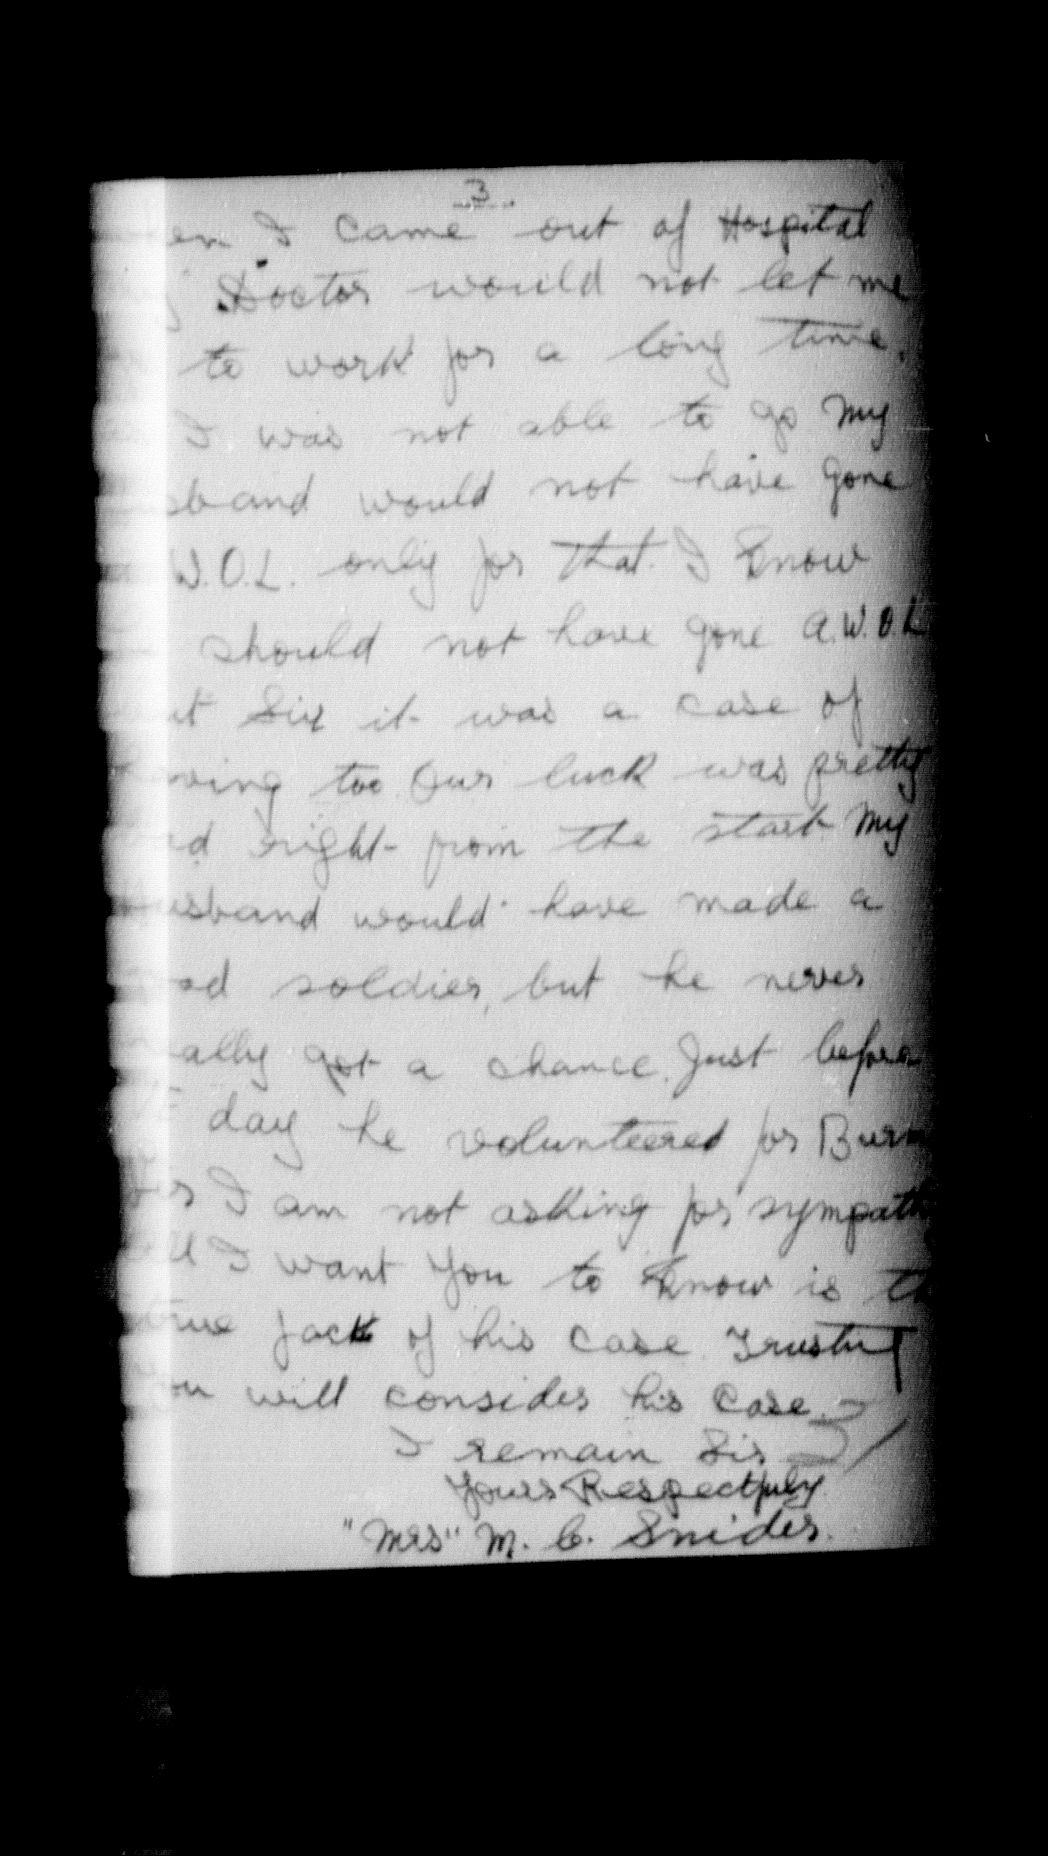 3
en I came out of Hospital
Doctor would not let me
to work for a long time.
I was not able to go My
sband would not have gone
W.O.L. only for that. I know
should not have gone A.W.O.L
ut Sir it was a case of
ving too. Our luck was pretty
ad right from the start My
usband would have made a
od soldier, but he never
ally got a chance. Just before
day he volunteered for Burm
Sir I am not asking for sympath
all I want You to know is th
true fact of his case. Trusting
ou will consider his case.
I remain Sir
Yours Respectfuly
"Mrs" M. C. Snider.